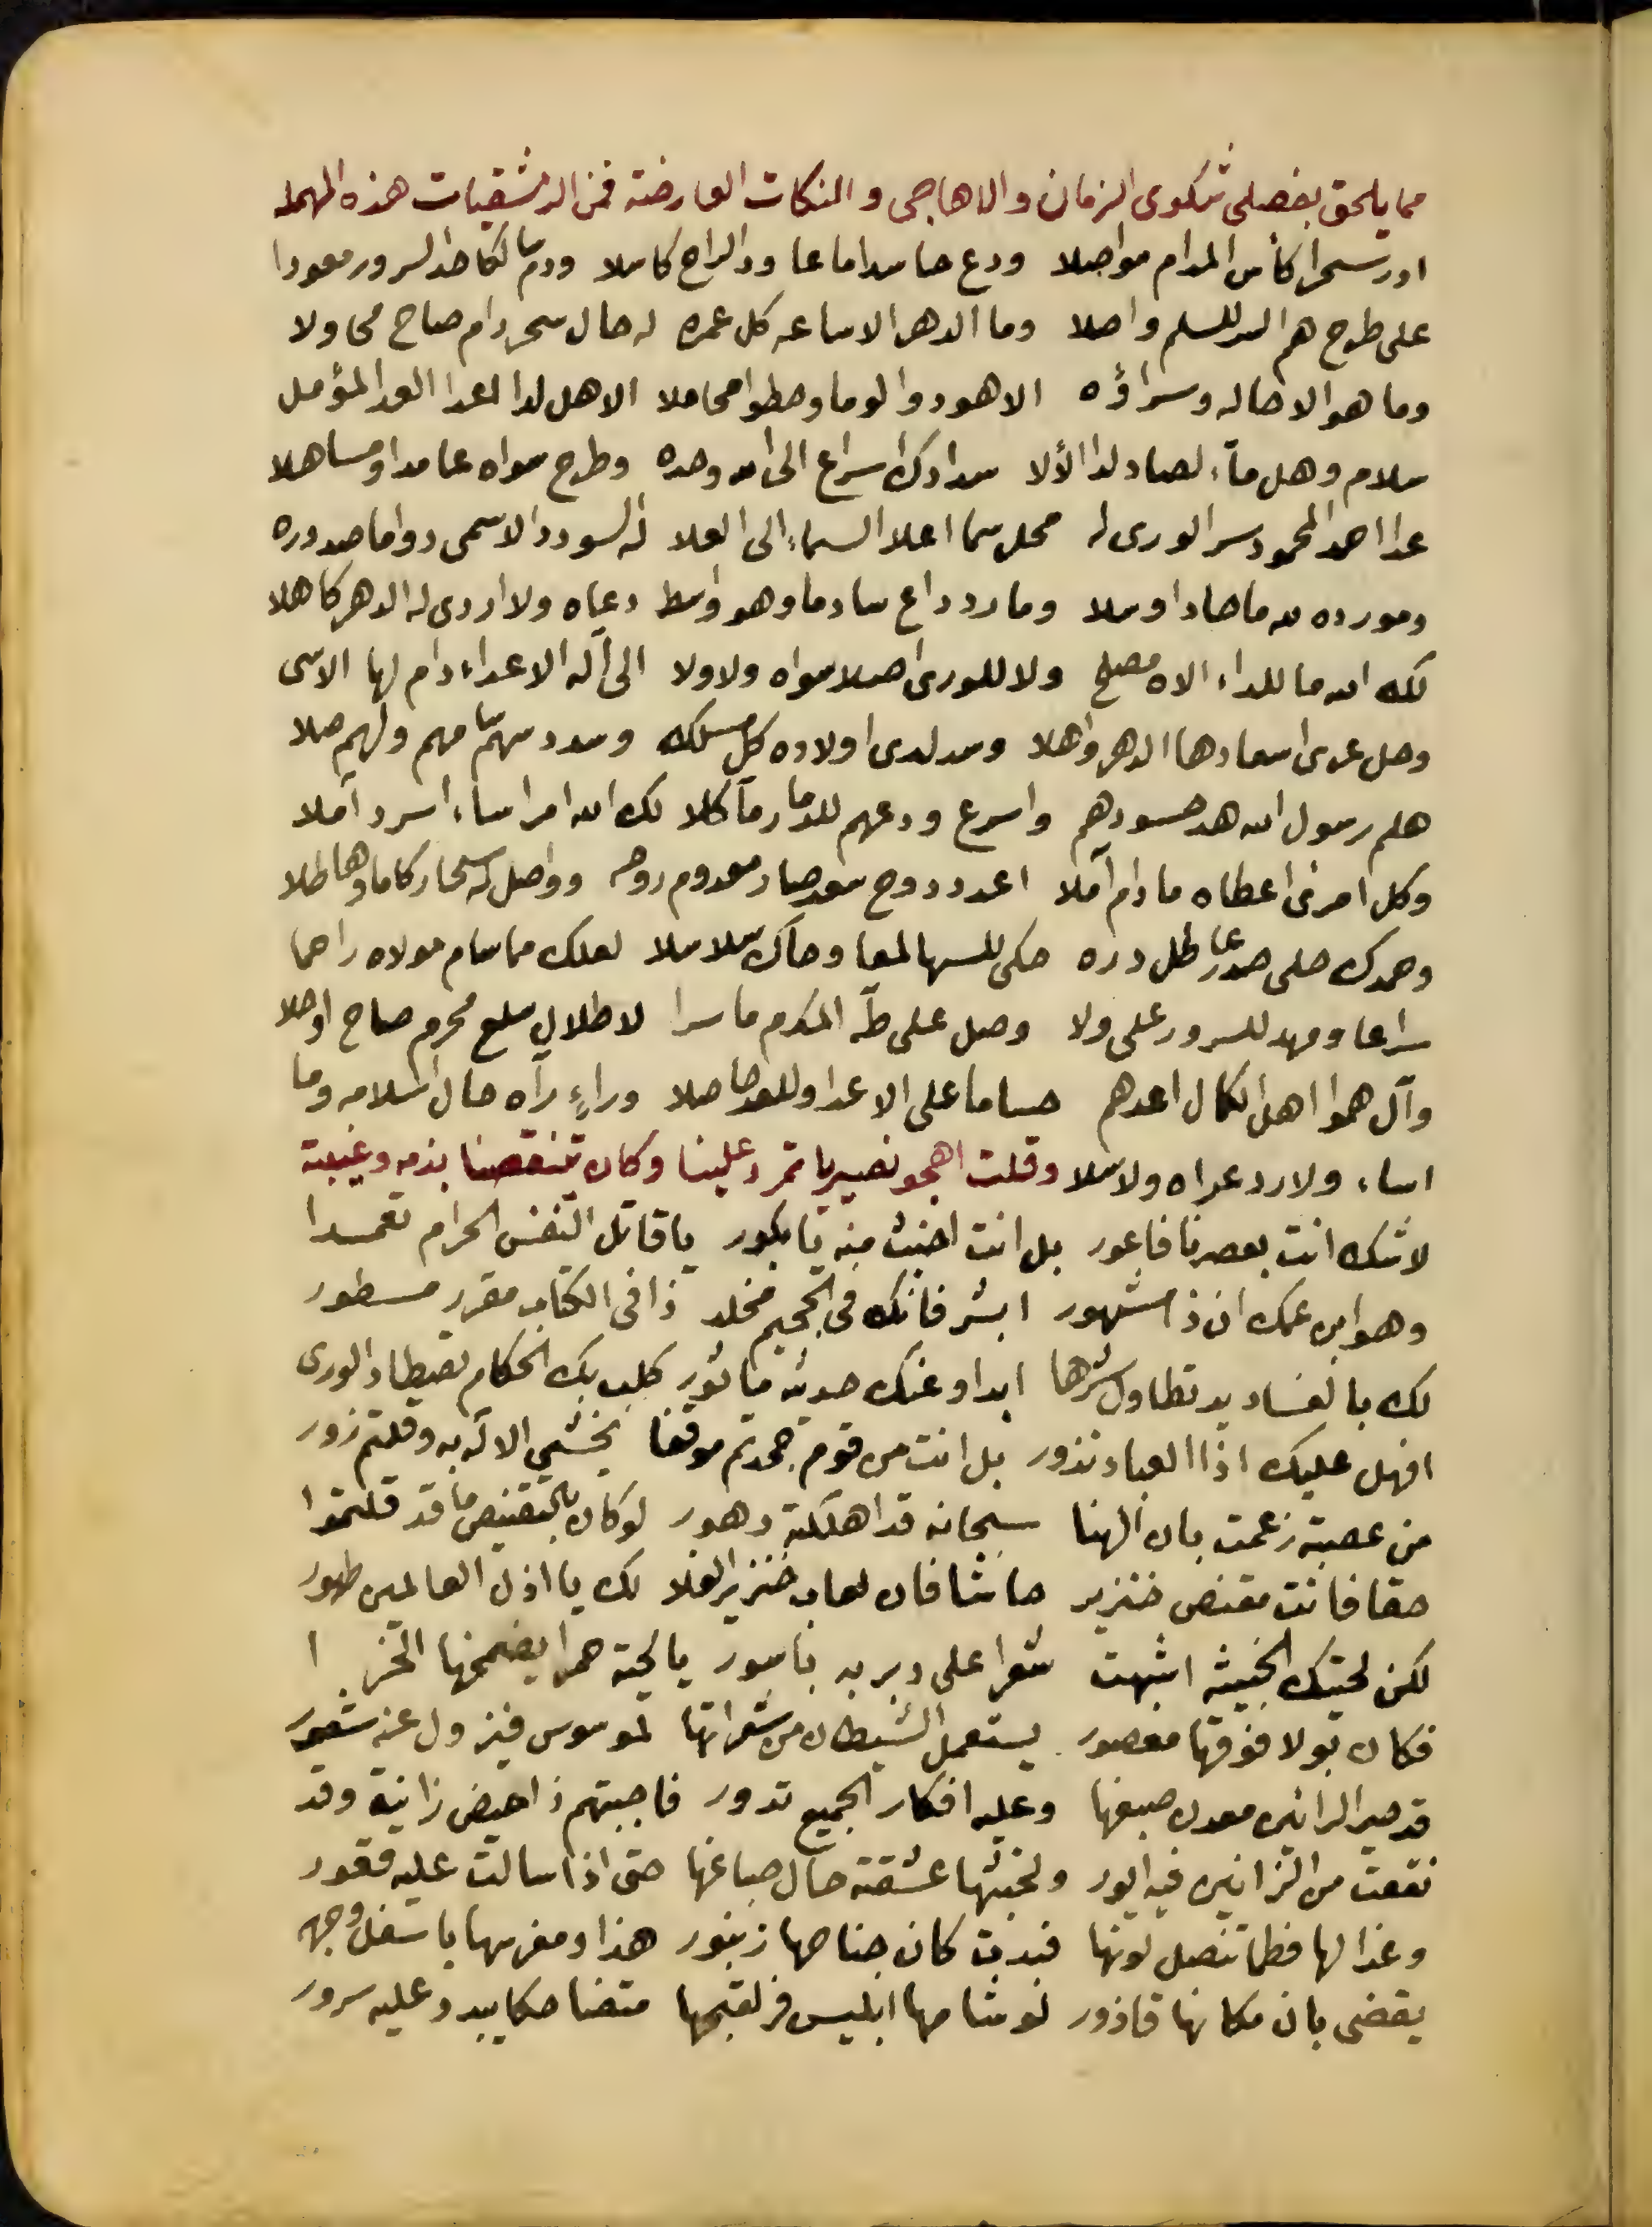 مما يلحق بفصلى شكوى الزمان والاهاجى والنكات العارضة فمن الدمشقيات هذه المهمله
ادر سحرا كأس المدام مواصلا ودع حاسدا ما عا ود الراح كاملا ودم سالكا حد السرور معودا
على طرح هم للسلم واصلا وما الدهر الا ساعه كل عمره له حال سحر دام صاح محاولا
وما هو الا حاله وسراؤه الا هودوا لوما وحطوا محاملا الا هل لداالعد المؤمل
سلام وهل ماء لصاد لدا الألا اسراع الى الله وحده وطرح سواه عامدا ومساهلا
عدا احمد المحمود سر الورى له محل سما اعلا السماء الى العلا له السودد الاسمى دواما صدوره
ومورده لله ما حاد اوسلا وما رد داع سادما وهو واسط دعاه ولا اردى له الدهر كاهلا
لك الله ما للداء الاه مصلح ولا للورى اصلا سواه ولا ولا الى آله الاعداء دام لها الاسى
وحل عرى اسعادها الدهر واهلا وسد لدى اولاده كل مسلك وسدد سهما مهم ولهم صلا
هلم رسول الله هد حسودهم واسرع ودعهم للدما رمآكلا لك الله امرا ساء اسرد آملا
وكل امرئ اعطاه ما دام آملا اعدد دوح سعد صار معدوم روحه وواصل له سحار كاما وهاطلا
وحمدك حلى صدرعا طل دره حكى للسها لمعا وحاك سلاسلا لعلك مما سام مولاه راحما
سراعا ومهد للسرور على ولا وصل على طه المكرم ما سرا لاطلال سلع محرم صاح اوحلا
وآل هموا اهل الكمال اعدهم حساما على الاعدا وللعد حاصلا وراء رآه حال اسلامه وما
اساء ولا رد عداه ولا سلا وقلت اهجو نصيريا تمرد علينا وكان يتنقصنا بذمه وغيبته
لا شك انت بعصرنا فاعور بل انت اخبث منه يا بكور يا قاتل النفس الحرام تعمدا
وهو ابن عمك ان ذا مشهور ابشر فانك فى الجحيم مخلد ذا فى الكتاب مقرر مسطور
لك بالفساد يد تطاول شرها ابدا وعنك حديثه مأثور كلب بك الحكام تصطاد الورى
افهل عليك اذا العباد تذور بل انت من قوم جحدتم موقفا يخشى الاله به وقلتم زور
من عصبة زعمت بان الهنا سبحانه قد اهلكته دهور لو كان بالتقنيص ما قد قلتموا
حقا فانت مقنص خنزير حاشا فان لعاب خنزير الفلا لك يا اذل العالمين طهور
لكن لحيتك الخبيثه اشبهت شعرا على دبر به باسور يا لحية حمرا يضمخها الخر ا
فكان بولا فوقها معصور يستعمل الشيطان من شعراتها لموسوس فيزول عنه شعور
قد حير الرائين معدن صبغها وعليه افكار الجميع تدور فاجبتهم ذا حيض زانية وقد
نقعت من الزانين فيه ايور ولخبثها عشقته حال صباغها حتى اذا سالت عليه قعور
وغذا لها فطما تنصل لونها فبدت كان جناحها زنبور هذا ومغرسها باسفل وجهه
يقضى بان مكانها قاذور لو شامها ابليس فر لقبحها متضاحكا يبدو عليه سرور